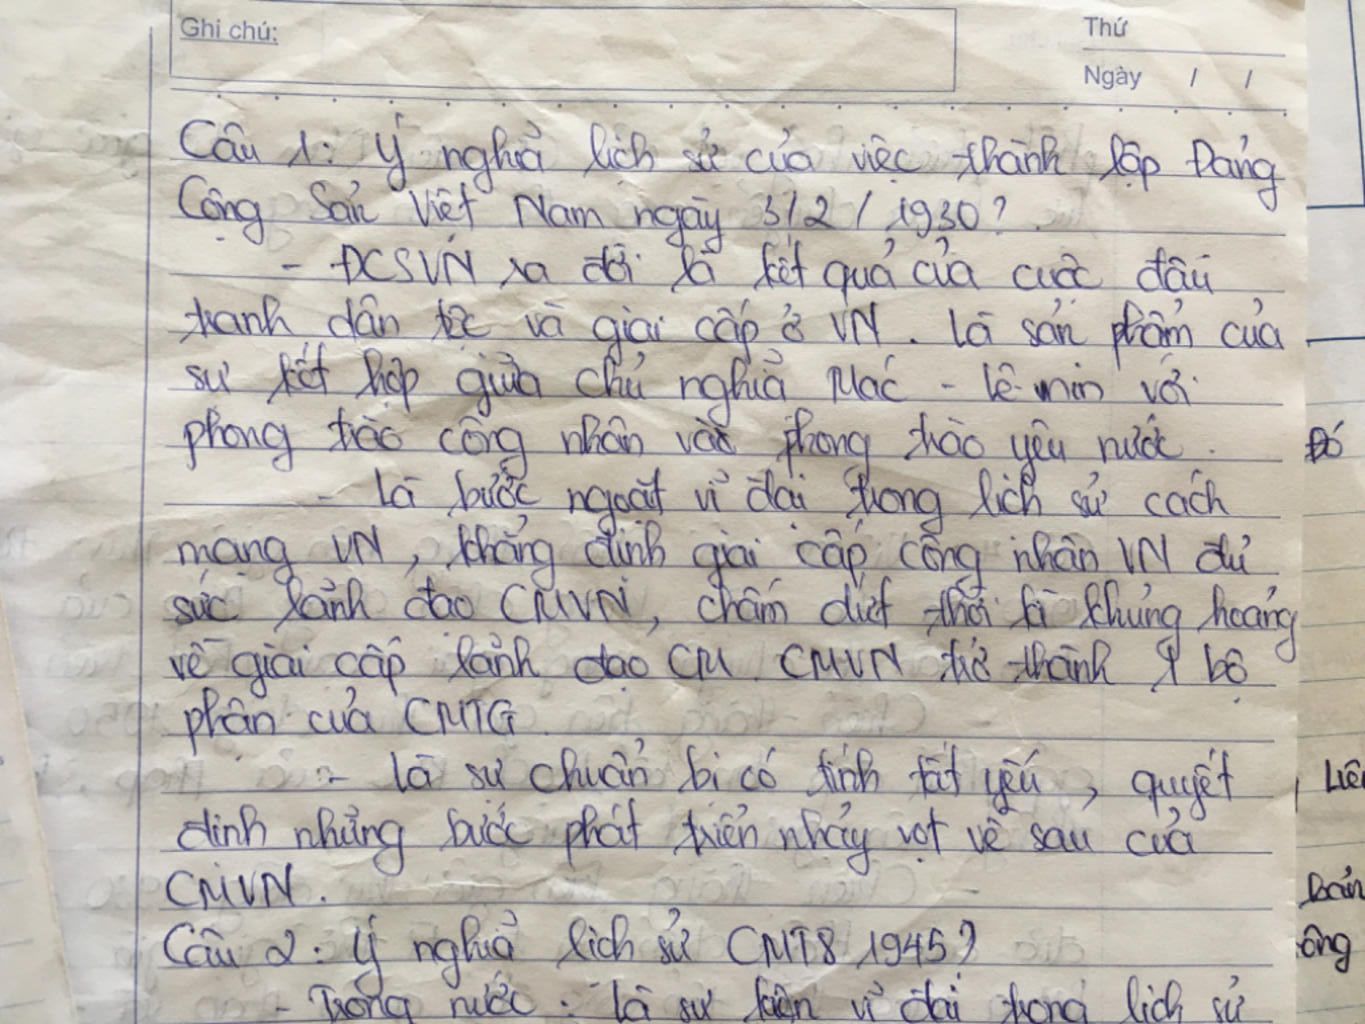 Ghi chú:
Thứ
Ngày / /
Câu 1: Ý nghĩả lịch sử của việc thành lập Đảng
Cộng Sản Việt Nam ngày 3/2/1930?
- ĐCSVN ra đời là kết quả của cuộc đấu
tranh dân tộc và giai cấp ở VN. là sản phẩm của
sự kết hợp giửa chủ nghỉả Mác - lê-min với
phong trào công nhân vào phong trào yêu nước.
- là bước ngoặt vỉ đại trong lịch sử cách
mạng VN, khẳng định giai cấp công nhân VN đủ
sức lảnh đạo CMVN, chấm dứt thời kì khủng hoảng
về giai cấp lảnh đạo CM. CMVN trở thành 1 bộ
phận của CMTG.
- là sự chuẩn bị có tính tất yếu, quyết
định nhửng bước phát triển nhảy vọt về sau của
CMVN.
Câu 2: Ý nghỉả lịch sử CMT8 1945?
- Trong nước: là sự kiện vỉ đại trong lịch sử
Đó
Liên
hoản
ông